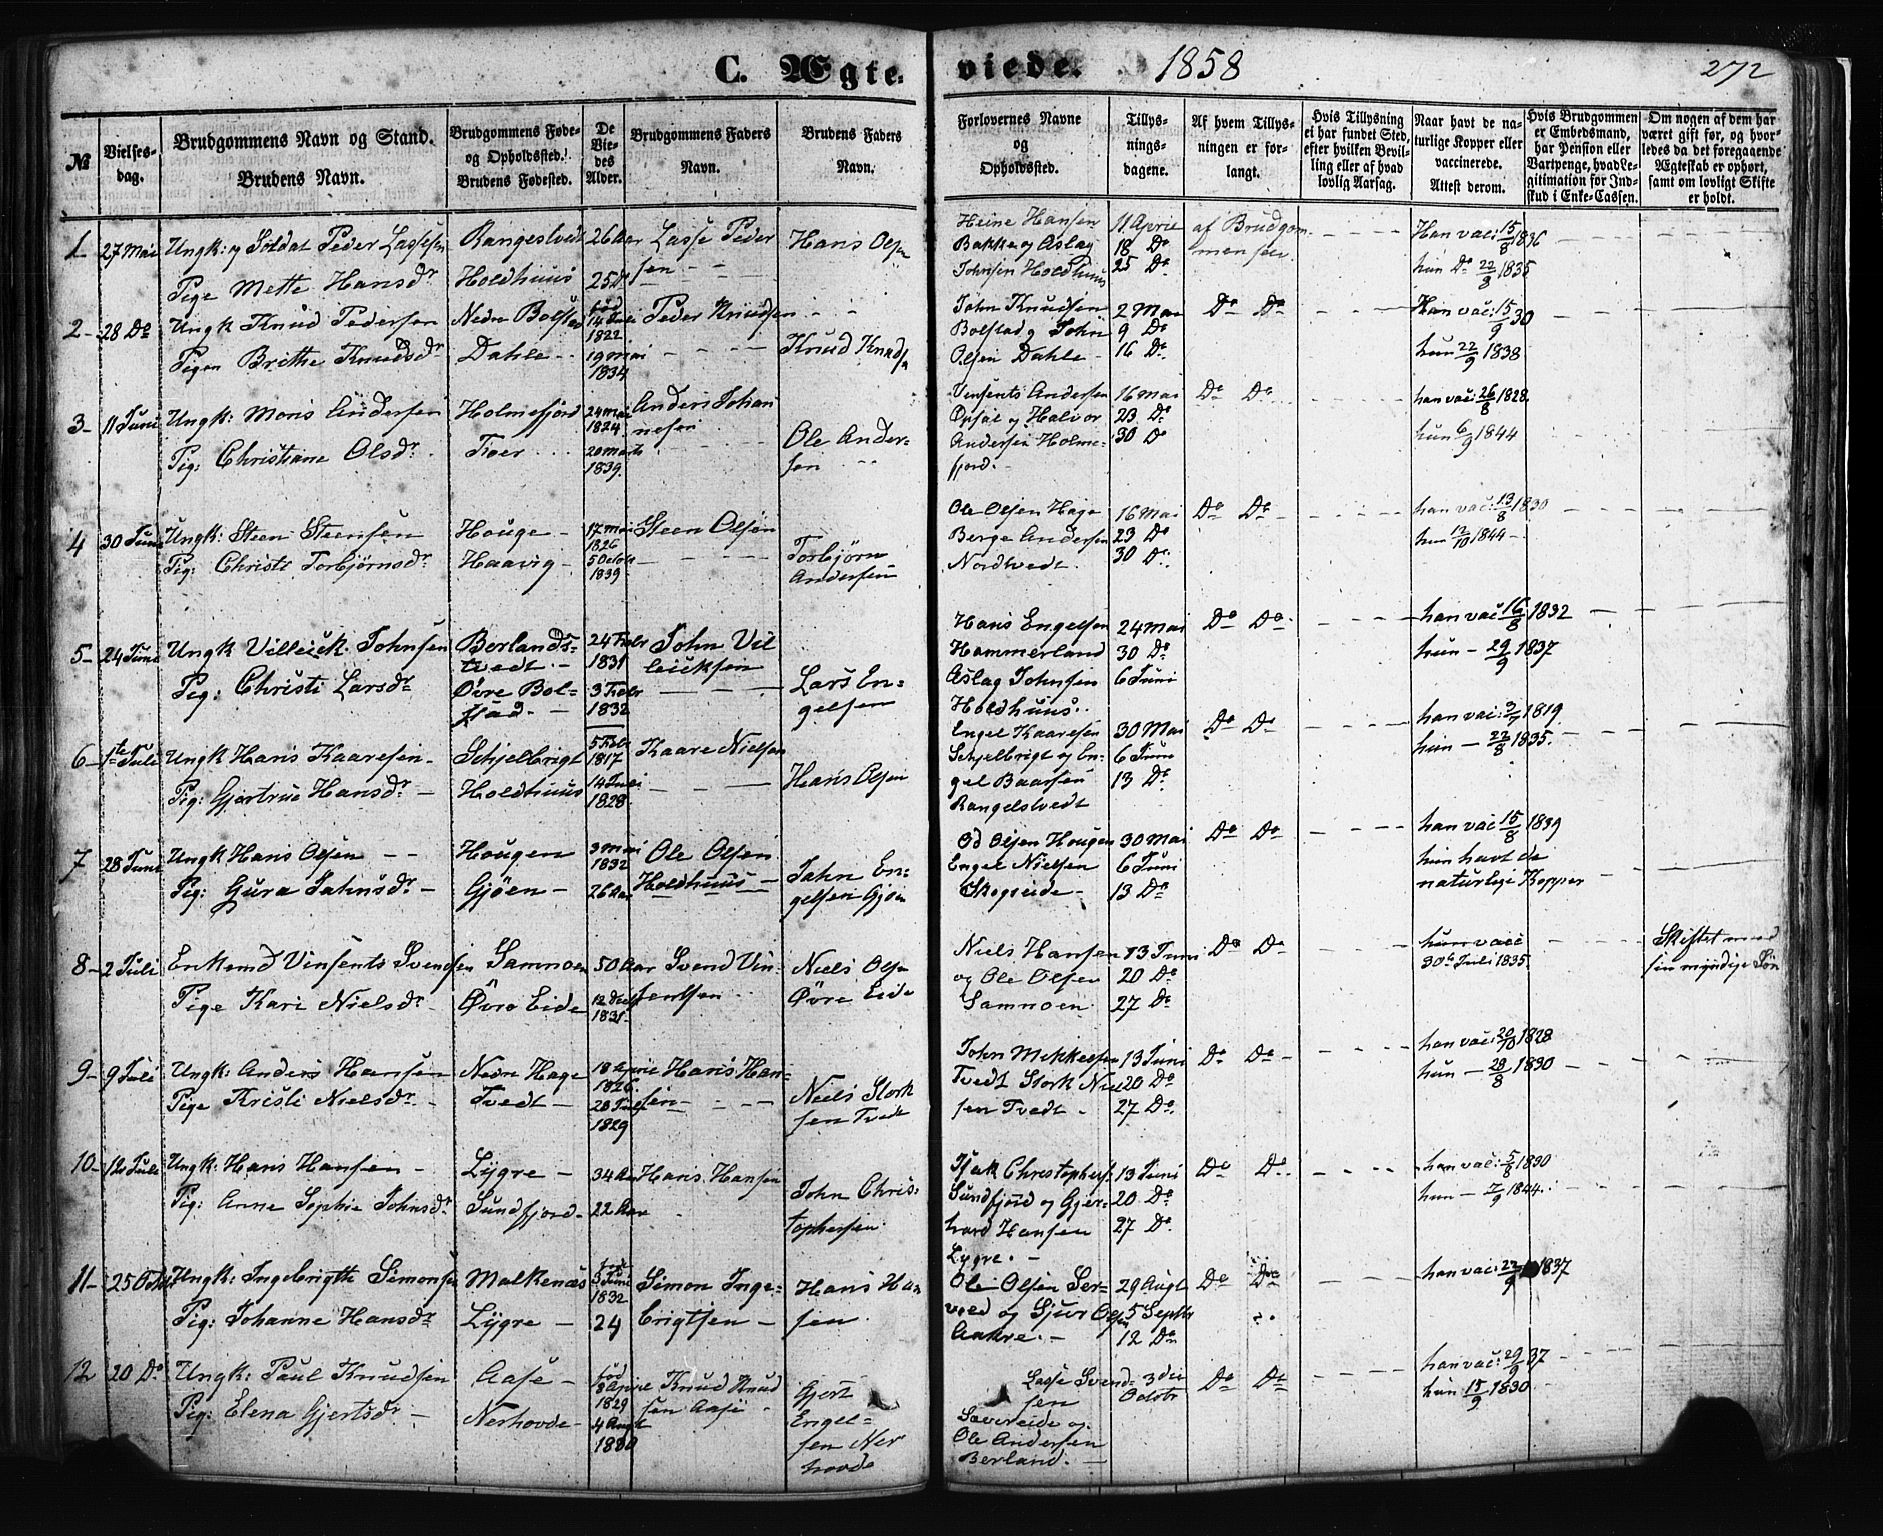 C. Ægte-
viede.
1858
272
№
Vielses-
dag.
Brudgommens Navn og Stand.
Brudens Navn.
Brudgommens Føde-
og Opholdssted.
Brudens Fødested.
De
Vie-
des
Alder.
Brudgommens Faders
Navn.
Brudens Faders
Navn.
Forlovernes Navne
og
Opholdssted.
Tillys-
nings-
dagene.
Af hvem Tillys-
ningen er for-
langt.
Hvis Tillysning
ei har fundet Sted,
efter hvilken Bevil-
ling eller af hvad
lovlig Aarsag.
Naar havt de na-
turlige Kopper eller
vaccinerede.
Attest derom.
Hvis Brudgommen
er Embedsmand,
har Pension eller
Vartpenge, hvad Le-
gitimation for Ind-
skud i Enke-Cassen.
Om nogen af dem har
været gift før, og hvor-
ledes da det foregaaende
Ægteskab er ophørt,
samt om lovligt Skifte
er holdt.
1 27 Mai Ungk: og Soldat Peder Lassesen
Pige Mette Hansdr
Rangeltvedt
Holdhuus
26 Aar
25 Do
Lasse Peder
sen
Hans Olsen
Heine Hansen
Bakke og Aslag
Johnsen Holdhuus
11 April
18 Do
25 Do
af Brudgom
men selv
Han vac: 15/8 1836
hun Do 22/8 1835
2 - 28 Do Ungk Knud Pedersen
Pigen Brithe Knudsdr
Nedre Bolstad
Dahle
fød
14 Juli
1822.
19 Mai
1834
Peder Knudsen
Knud Knudsn
John Knudsen
Bolstad og John
Olsen Dahle
2 Mai
9 Do
16 Do
Do Do
Han vac: 15/9 30
hun 22/9 1838
3 - 11 Juni Ungk: Mons Andersen
Pig: Christiane Olsdr.
Holmefjord
Tioer
24 Mai
1824
20 Marts
1839.
Anders Johan
nesen
Ole Ander-
sen
Vinsents Andersen
Opsal og Halvor
Andersen Holme-
fjord.
16 Mai
23 Do
30 Do
Do Do
han vac: 26/8 1828
hun 6/9 1844
4 30 Juni Ungk: Steen Steensen
Pig: Christi Torbjørnsdr
Houge
Haavig
17 Mai
1826
5 Octobr
1839
Steen Olsen
Torbjørn
Andersen
Ole Olsen Hage
Berge Andersen
Nordtvedt
16 Mai
23 Do
30 Do
Do Do
han vac: 13/8 1830
hun 12/10 1844
5 - 24 Juni Ungk Villeick Johnsen
Pig: Christi Larsdr
Berlands-
tvedt
Øvre Bol-
stad.
24 Febr
1831
3 Febr
1832
John Vil
leicksen
Lars En-
gelsen
Hans Engelsen
Hammerland
Aslag Johnsen
Holdhuus.
24 Mai
30 Do
6 Juni
Do Do
han vac 16/8 1832
hun - 29/9 1837
6 - 1te Juli Ungk Hans Kaaresen
Pig: Gjertrue Hansdr
Schjelbrigt
Holdhuus
5 Febr
1817
14 Juli
1828
Kaare Nielsen
Hans Olsen
Engel Kaaresen
Schjelbrigt og En-
gel Baarsen
Rangelstvedt
30 Mai
6 Juni
13 Do
Do Do
han vac: 3/7 1819
hun - 22/8 1835.
7 - 28 Juni Ungk Hans Olsen
Pig: Gura Jahnsdr
Hougen
Gjøen
3 Mai
1832
26 Aar
Ole Olsen
Holdhuus
Jahn En-
gelsen Gjøen
Od Olsen Hougen
Engel Nielsen
Skogseide
30 Mai
6 Juni
13 Do
Do Do
han vac 15/8 1839
hun havt de
naturlige Kopper
8 - 2 Juli Enkemd Vinsents Svendsen
Pige Kari Nielsdr
Samnoen
Øvre Eide
50 Aar
1831
Svend Vin-
sentsen
Niels Olsn
Øvre Eide
Niels Hansen
og Ole Olsen
Samnoen
13 Juni
20 Do
27 Do
Do Do
hun vacc
30te Juli 1835.
Skiftet med
sin myndige Søn
9 - 9 Juli Ungk: Anders Hansen
Pige Kristi Nielsdr
Nedre Hage
Tvedt
18 April
1826.
28 Juli
1829
Hans Han-
sen
Niels Stork
sen Tvedt
John Mikkelsen
Tvedt Stork Niel
sen Tvedt
13 Juni
20 Do
27 Do
Do Do
han vac: 20/10 1828
hun - 28/8 1830
10 - 12 Juli Ungk: Hans Hansen
Pig: Anne Sophie Johnsdr
Lygre
Sundfjord
34 Aar
22 Aar
Hans Hansen
John Chris
tophersen
Isak Christophers.
Sundfjord og Gjer-
hard Hansen
Lygre.
13 Juni
20 Do
27 Do
Do Do
han vac: 5/8 1830
hun - 7/9 1844.
11 - 25 Octbr Ungk: Ingebrigtte Simonsen
Pig: Johanne Hansdr
Malkenæs
Lygre
fød
3 Juni
1832
24
Simon Inge-
brigtsen
Hans Han
sen
Ole Olsen Ser-
vold og Sjur Olsen
Aakre.
29 Augt
5 Septbr
12 Do
Do Do
han vac: 22/9 1837
12 20 Do Ungk: Paul Knudsen
Pig: Elena Gjertsdr
Aase
Nerhovde
fød
8 April
1829
4 Augt
1830
Knud Knud
sen Aase
Gjert
Engel-
sen Ner
hovde
Lasse Svend-
sen
Sævereide og
Ole Andersen
Berland.
3die
Octbr
Do Do
han vac: 29/9 37
hun 15/9 1830